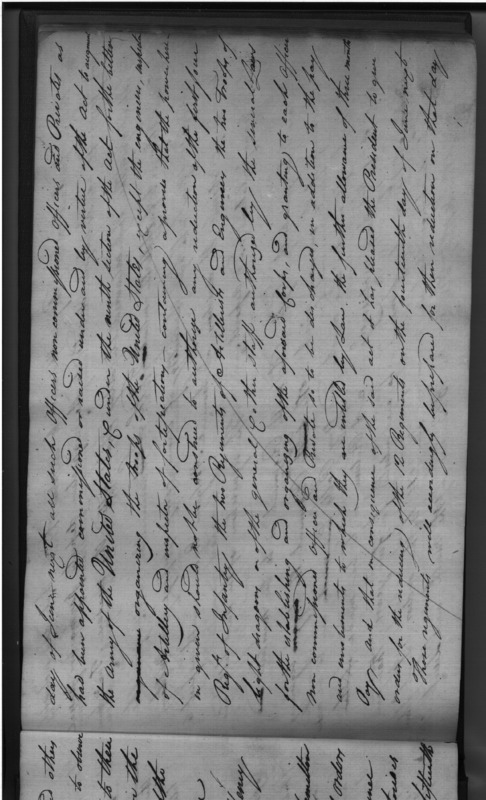 day of June next all such officers non commissioned officers and Privates as
had been appointed commissioned or raised under and by virtue of the Act to augment
the army of the United States, & under the ninth section of the Act for the better
organizing the troops of the United States, except the engineers,
of Artillery and of fortifications, containing a proviso that the
in given should not be construed to authorize any reduction of the first four
Regts of Infantry, the two Regiments of Artillerists and Engineers the two Troops of
light dragoons, or of the general & other staff authorized by the several Laws
for the establishing and organizing of the aforesaid Corps, and granting to each officer
non commissioned officer and Private so to be discharged, in addition to the pay
and emoluments to which they are entitled by Law the further allowance of three months
Pay and that in consequence of the said act it has pleased the President to give
orders for the reducing of the 12 Regiments on the fourteenth day of June next
These regiments will accordingly be prepared for their reduction on that day
d other
to
to their
in the
the
mother
orders